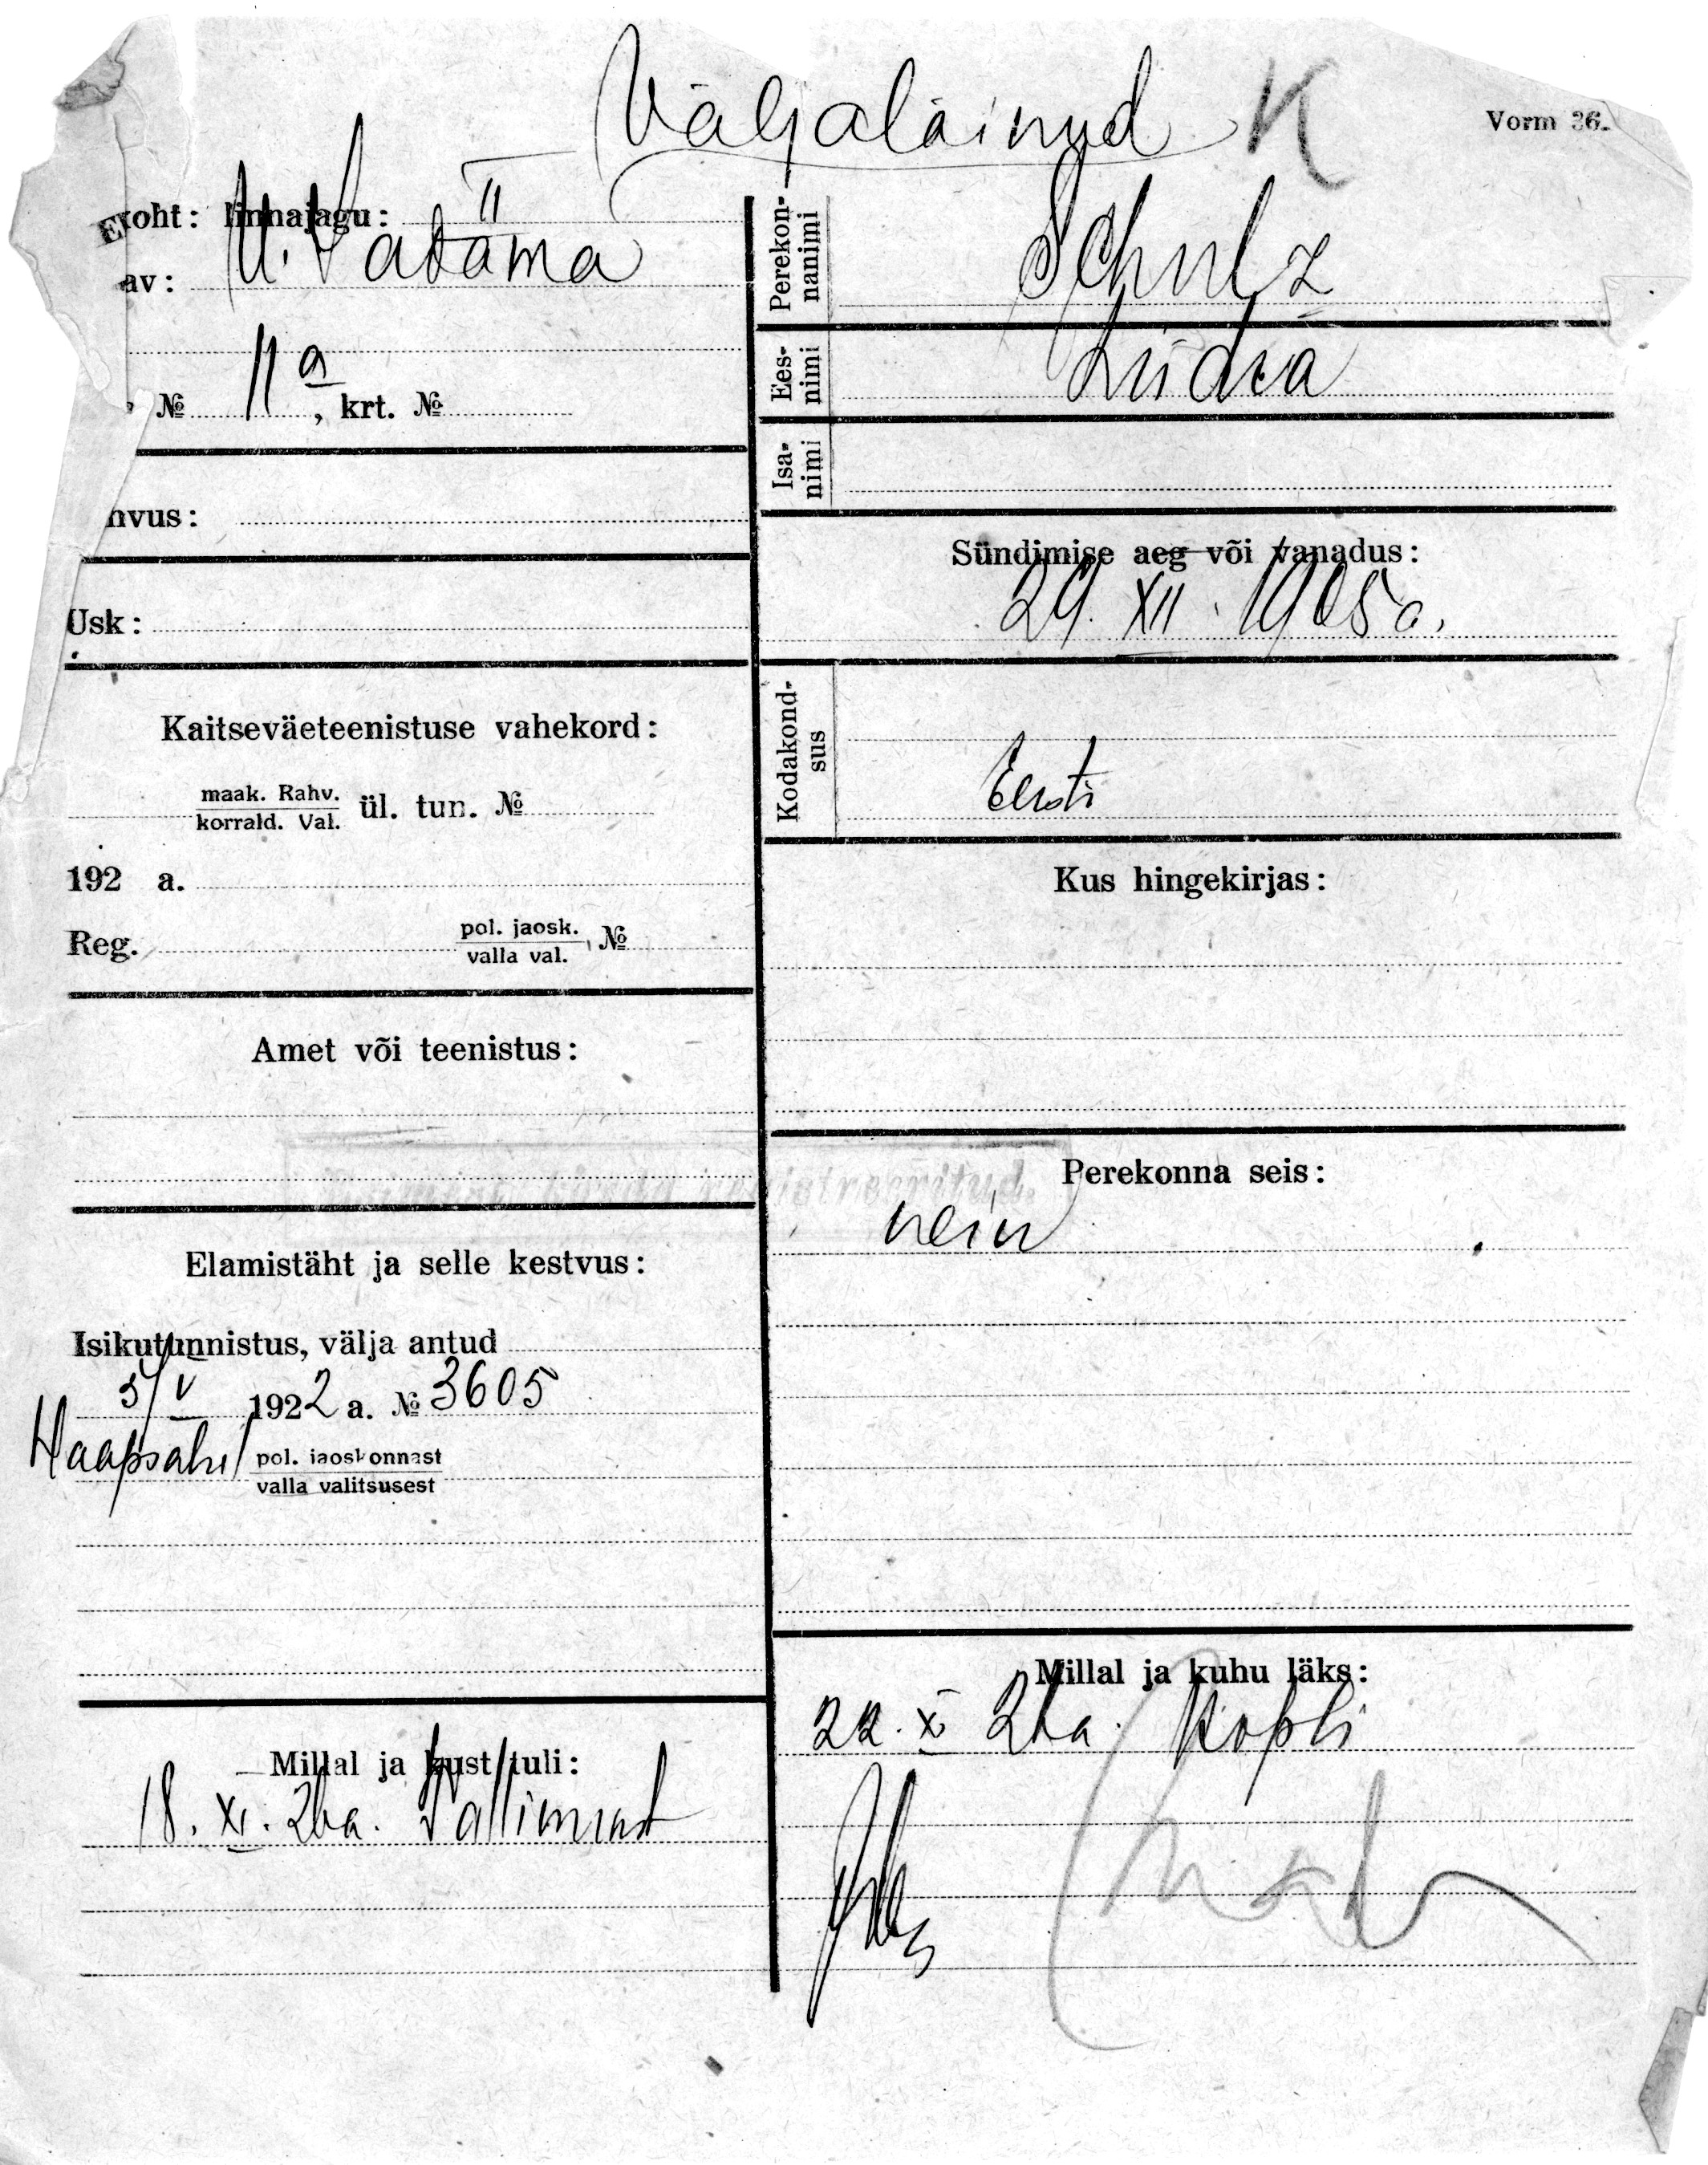 Väljaläinud K
Vorm 36.
E koht: linnajagu: II
av: U. Sadama
№ 11 a, krt. №
hvus:
Usk:
Kaitseväeteenistuse vahekord:
maak. Rahv.
korrald. Val. ül. tun. №
192 a.
Reg. pol. jaosk. №
valla val.
Amet või teenistus:
registreeritud.
Elamistäht ja selle kestvus:
Isikutunnistus, välja antud
5/V 1922 a. № 3605
Haapsalu pol. jaoskonnast
valla valitsusest
Millal ja kust tuli:
18. XI. 26a. Tallinnast
Perekon-
nanimi Schulz
Ees-
nimi Liidia
Isa-
nimi
Sündimise aeg või vanadus:
29. XII. 1905 a.
Kodakond-
sus Eesti
Kus hingekirjas:
Perekonna seis:
neiu
Millal ja kuhu läks:
22. XI 26a. Kopli